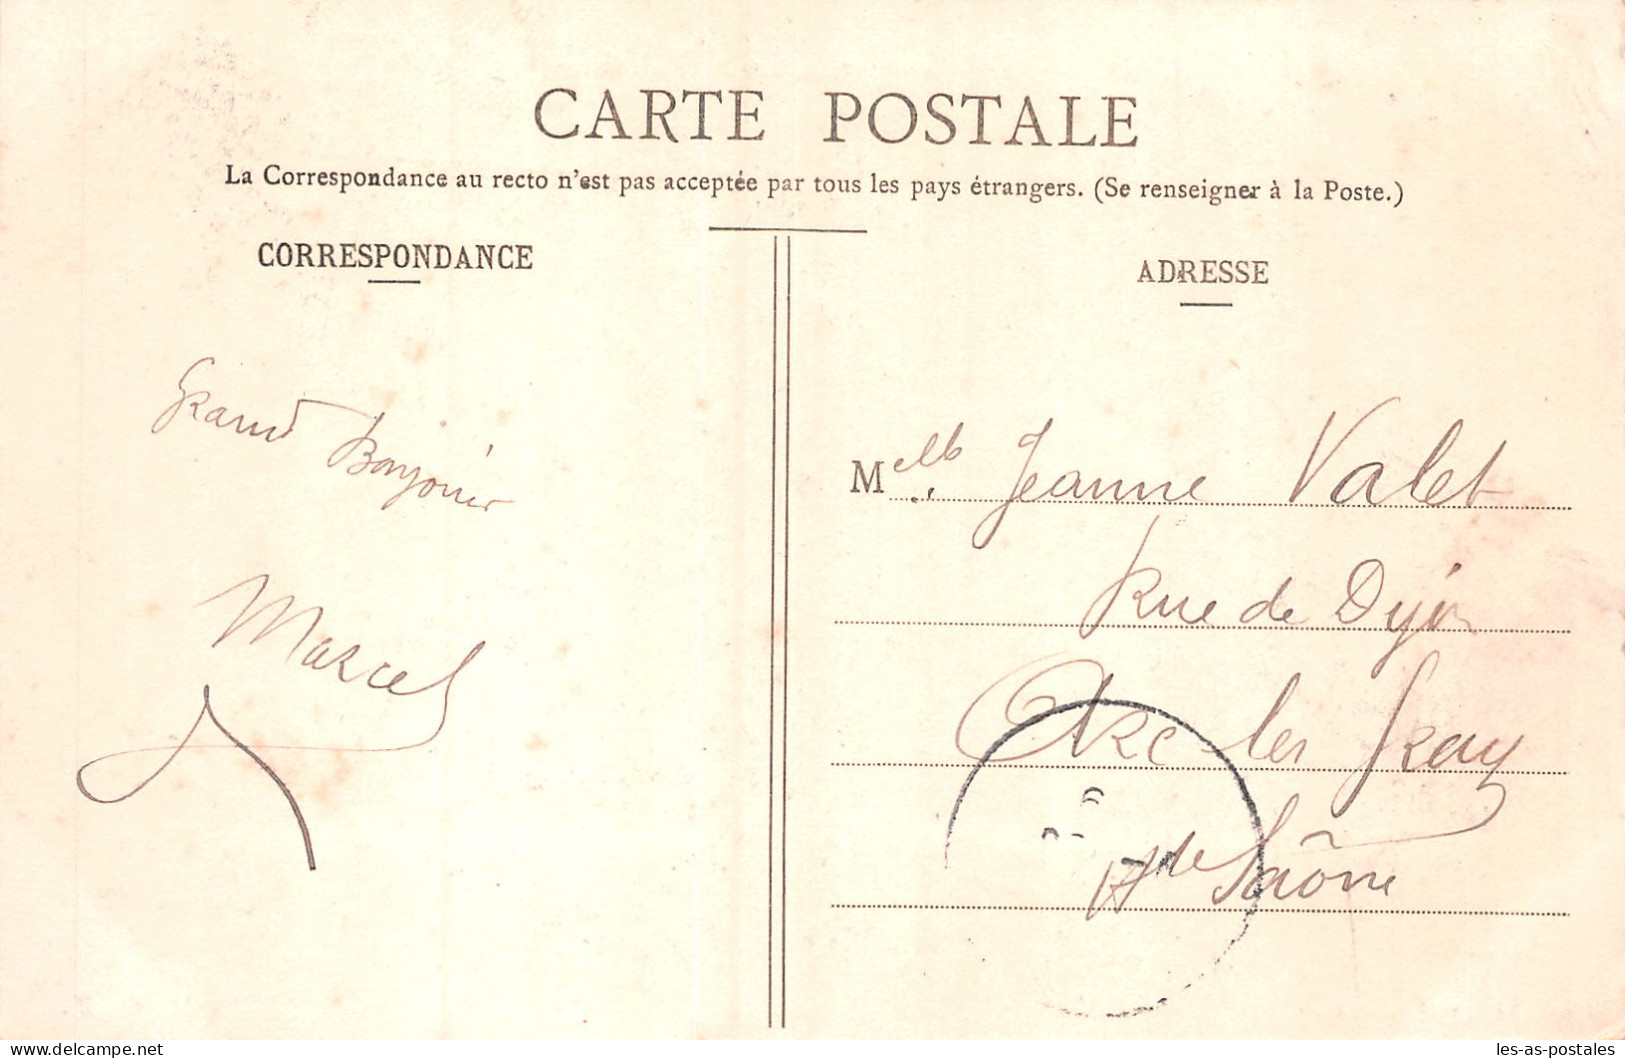 CARTE POSTALE
La Correspondance au recto n'est pas acceptée par tous les pays étrangers. (Se renseigner à la Poste.)
CORRESPONDANCE
Grand Bonjour
Marcel
ADRESSE
Melle Jeanne Valet
Rue de Dijon
Arc les Gray
Hte Saône
delcampe.net
les-as-postales